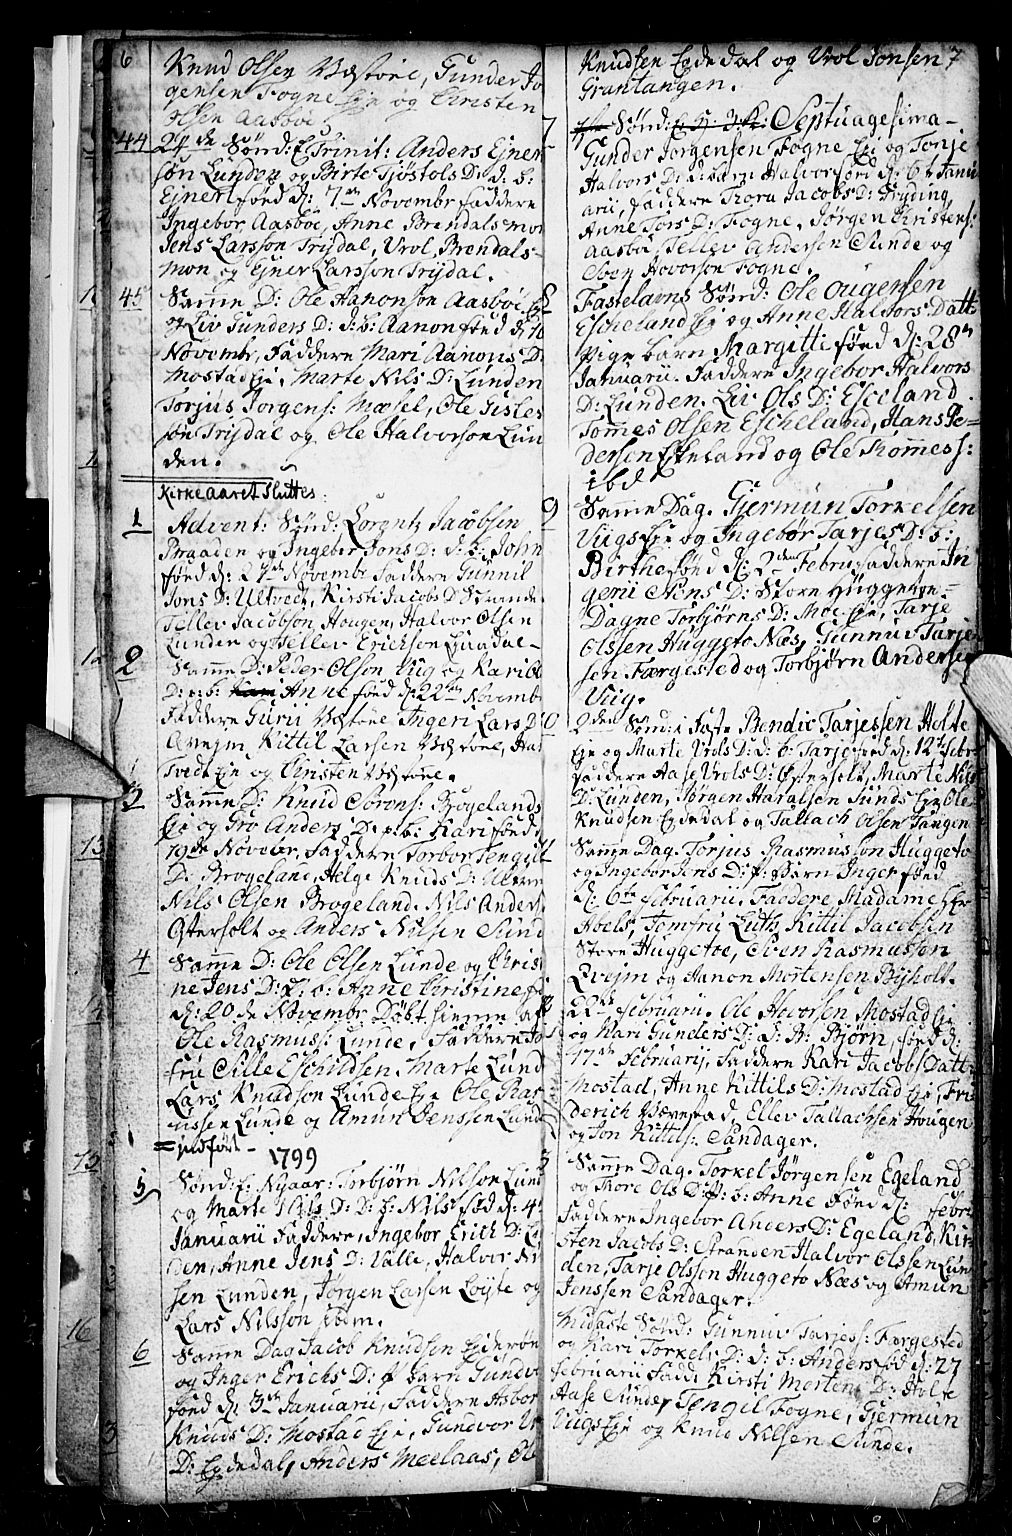 6
Knud Olsen Væstøe, Gunder Jo
gensen Fogne Eje og Christen
Olsen Aasbøe
44 24de Sønd: E Trinit: Anders Ejner
søn Lunden og Birte Tjøstols D: d: b:
Ejnert fønd d: 7de Novembr faddere
Ingebor Aasbøe, Anne Brendalsmon
Jens Larsson Trydal, Vrol Brendals-
mon og Ejner Larsson Trydal.
45 Samme D: Ole Aanonsøn Aasbøe Eje
og Liv Gunders D: d: b: Aanon fønd d: 10
Novembr, Faddere Mari Aanons D:
Mostad Eje, Marte Nils D: Lunden
Torjus Jorgens: Mæsel, Ole Gisles
søn Trydal og Ole Halvorson Lun
den.
Kirke aaret sluttes:
1 Advent: Sønd: Lorentz Jacobsen
Braaden og Ingebor Jons D: d: b: John
fønd d: 27de Novembr Faddere Gunnil
Jons D: Ultvedt, Kirsti Jacobs D:
Tellev Jacobson Hougen, Halvor Olsen
Lunden og Tellev Erickson Ljøsdal-
2 Samme D: Peder Olson Vüg og Kari Ols
D: p: b: Anne fønd d: 22de Novembr
Faddere Gurii Væstøe, Ingeri Lars D:
Kittil Larsen Væstøe,
Tvedt Eje og Christen Væstøe.
3 Samme D: Knud Sørens: Brogelands
Eje og Gro Anders D: p: b: Kari fønd d
19de Novebr, Faddere Torbor Tengils
D: Brogeland, Helge Knuds D:
Nils Olsen Brogeland. Nils Anders
Østerholt og Anders Nilsen Sund
4 Samme D: Ole Olsen Lunde og Chris
ne Jens D: p: b: Anne Christine fø
d: 20de Novembr Døbt hiemme af
Ole Rasmuss: Lunde, Faddere Jom
fru Sille Eschildsen, Marte Lund
Lars Knudson Lunde Eje Ole Ras
mussen Lunde og Amun Jenssen Lund
= jndført -
1799
5 Sønd: f: Nyaar: Torbjørn Nilson Lund
og Marte Nils D: D: b: Nils fød d: 4de
Januarii Faddere, Ingebor Erich D: Lu
den, Anne Jens D: Valle, Halvor Ni
sen Lunden, Jørgen Larsen Løyte og
Lars Nilsson ibdm.
6 Samme Dag Jacob Knudsen
og Inger Erichs D: p barn Gundvo
fønd d: 3de Januarii, Faddere Asbor
Knuds D: Mostad Eje, Gundvor Vr
D: Egdedal, Anders Meelaas, Ole
7
Knudsen Egdedal og Vrol Jonsen
Grantangen.
7 Sønd: Septuagesima-
Gunder Jørgensen Fogne Eje og Tonje
Halvors D: d: barn Halvor fød d: 6te Janu
arii, Faddere Thora Jacobs D: Dryding
Anne Tors D: Fogne, Jørgen Christens:
Aasbø, Tellev Andersen Sunde og
Even Hovorson Fogne.
8 Fastelavns Sønd: Ole Ougensen
Escheland Eje og Anne Halvors Datt:
Pige barn Margitte fønd d: 28de
Januarii. Faddere Ingebor Halvors
D: Lunden. Liv Ols D: Eseland.
Tomes Olsen Escheland, Hans Pe-
dersen Eskeland og Ole Thomess:
ibdt
9 Samme Dag. Gjermun Torkelsen
Viigs Eje og Ingebør Tarjes D: b:
Birthe fønd d: 2den Febru: Faddere In
gerii Stens D: Store Hüggetoe-
Dagne Torbjørns D: Moe Eje, Tarje
Olssen Huggeto Næs, Gunnuv Tarje
sen Færgested og Torbjørn Andersen
Viig.
2den Sønd: i Faste Bendic Tarjessen Holte
Eje og Marte Vrols D: d: b: Tarje fønd d: 12te Febr
Faddere Aase Vrols D: Østerholt, Marte Nils
D: Lunden, Jørgen Haralsen Sunds Eje Ole
Knudsen Egdedal og Tallach Olsen Tangen
Samme Dag. Torjus Rasmusson Huggeto
og Ingebor Jens D: p: Barn Inger fønd
d: 6te Februarii. Faddere Madame
Hoels, Jomfru Luth, Kittil Jacobsen
Store Huggetoe, Even Rasmusson
Qvejm og Aanon Mortensen Bijholt.
22de Februarii. Ole Hovorsen Mostad Eje
og Kari Gunders D: d: b: Bjørn, fønd d:
17de Februarij, Faddere Kari Jacobs Datt:
Mostad, Anne Kittils D: Mostad Eje, Fri
derich Wærestad, Ellev Tallachsen Hougen
og Jon Kittils: Sandager.
Samme Dag. Torkel Jørgensen Egeland
og Thore Ols D: p: b: Anne Fønd d: Febr:
Faddere Ingebor Anders D: Egeland, Kir-
sten Jacobs D: Stranden Halvor Olssen Lun
den, Tarje Olsson Huggeto Næs og Amun
Jenssen Sandager.
Midfaste Sønd: Gunnuv Tarjess: Færgested
og Kari Torkels D: d: b: Anders fød d: 27
Februarii Fadd: Kirsti Morten D: Holte
Aase Sunde, Tengil Fogne, Gjermun
Viigs Eje og Knud Nilsen Sunde.